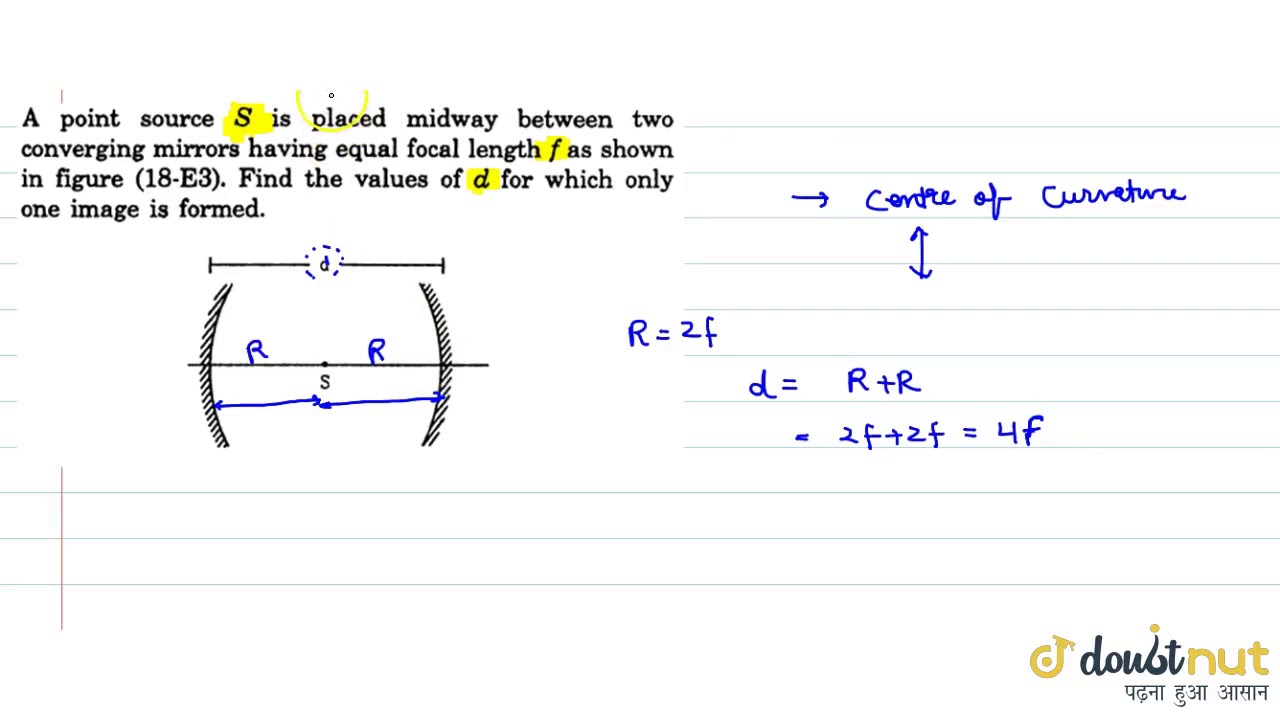 A point source S is placed midway between two
converging mirrors having equal focal length f as shown
in figure (18-E3). Find the values of d for which only
one image is formed.
d
R R
S
→ Centre of Curvature
R = 2f
d = R + R
= 2f + 2f = 4f
doubtnut
पढ़ना हुआ आसान